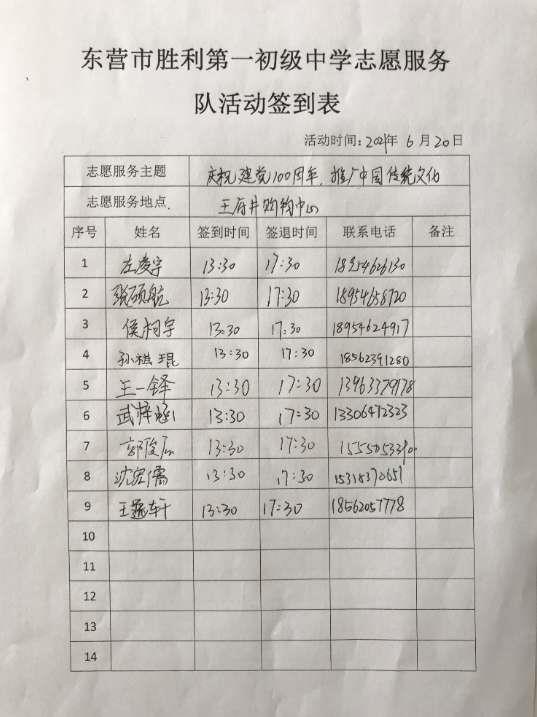 东营市胜利第一初级中学志愿服务
队活动签到表
活动时间:2021年 6 月 20 日
志愿服务主题 庆祝建党100周年,推广中国传统文化
志愿服务地点 王府井购物中心
序号 姓名 签到时间 签退时间 联系电话 备注
1 左凌宇 13:30 17:30
2 张硕航 13:30 17:30 18954658720
3 侯柯宇 13:30 17:30 18954624917
4 孙祺琨 13:30 17:30 18562391280
5 王一铎 13:30 17:30 13963379178
6 武梓涵 13:30 17:30 13306472323
7 13:30 17:30
8 沈宏儒 13:30 17:30 15315370651
9 王逸轩 13:30 17:30 18562057778
10
11
12
13
14